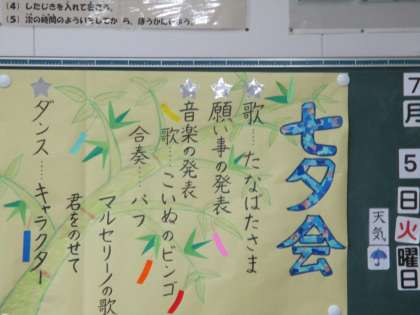 (4) したじきを入れて書こう。
(5) 次の時間のよういをしてから、ほうかんしよう。
七夕会
歌……たなばたさま
願い事の発表
音楽の発表
歌……こいぬのビンゴ
合奏……パフ
マルセリーノの歌
君をのせて
ダンス……キャラクター
7月
5日火曜日
天気